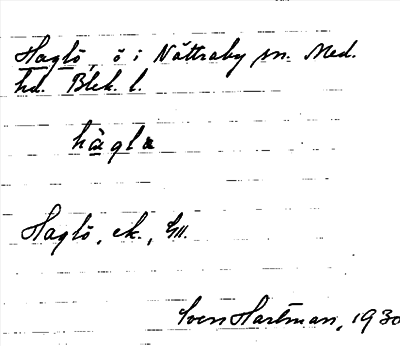 Haglö, ö i Nättraby sn. Med.
hd. Blek. l.
hàgla
Haglö, ek.,
Sven Hartman, 1930